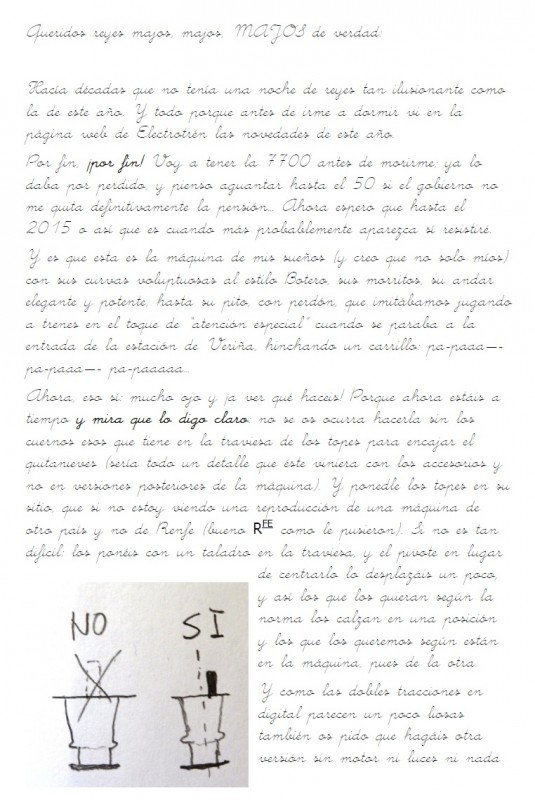 Queridos reyes majos, majos, MAJOS de verdad:
Hacía décadas que no tenía una noche de reyes tan ilusionante como
la de este año. Y todo porque antes de irme a dormir vi en la
página web de Electrotrén las novedades de este año.
Por fin, ¡por fin! Voy a tener la 7700 antes de morirme; ya lo
daba por perdido, y pienso aguantar hasta el 50 si el gobierno no
me quita definitivamente la pensión... Ahora espero que hasta el
2015 o así que es cuando más probablemente aparezca sí resistiré.
Y es que esta es la máquina de mis sueños (y creo que no solo míos)
con sus curvas voluptuosas al estilo Botero, sus morritos, su andar
elegante y potente, hasta su pito, con perdón, que imitábamos jugando
a trenes en el toque de "atención especial" cuando se paraba a la
entrada de la estación de Veriña, hinchando un carrillo: pa-paaa—-
pa-paaa—- pa-paaaaa...
Ahora, eso sí: mucho ojo y ¡a ver qué haceis! Porque ahora estáis a
tiempo y mira que lo digo claro: no se os ocurra hacerla sin los
cuernos esos que tiene en la traviesa de los topes para encajar el
quitanieves (sería todo un detalle que éste viniera con los accesorios y
no en versiones posteriores de la máquina). Y ponedle los topes en su
sitio, que si no estoy viendo una reproducción de una máquina de
otro país y no de Renfe (bueno RFE como le pusieron). Si no es tan
difícil: los ponéis con un taladro en la traviesa, y el pivote en lugar
de centrarlo lo desplazáis un poco,
y así los que los quieran según la
norma los calzan en una posición
y los que los queremos según están
en la máquina, pues de la otra.
NO SÍ
Y como las dobles tracciones en
digital parecen un poco liosas
también os pido que hagáis otra
versión sin motor ni luces ni nada